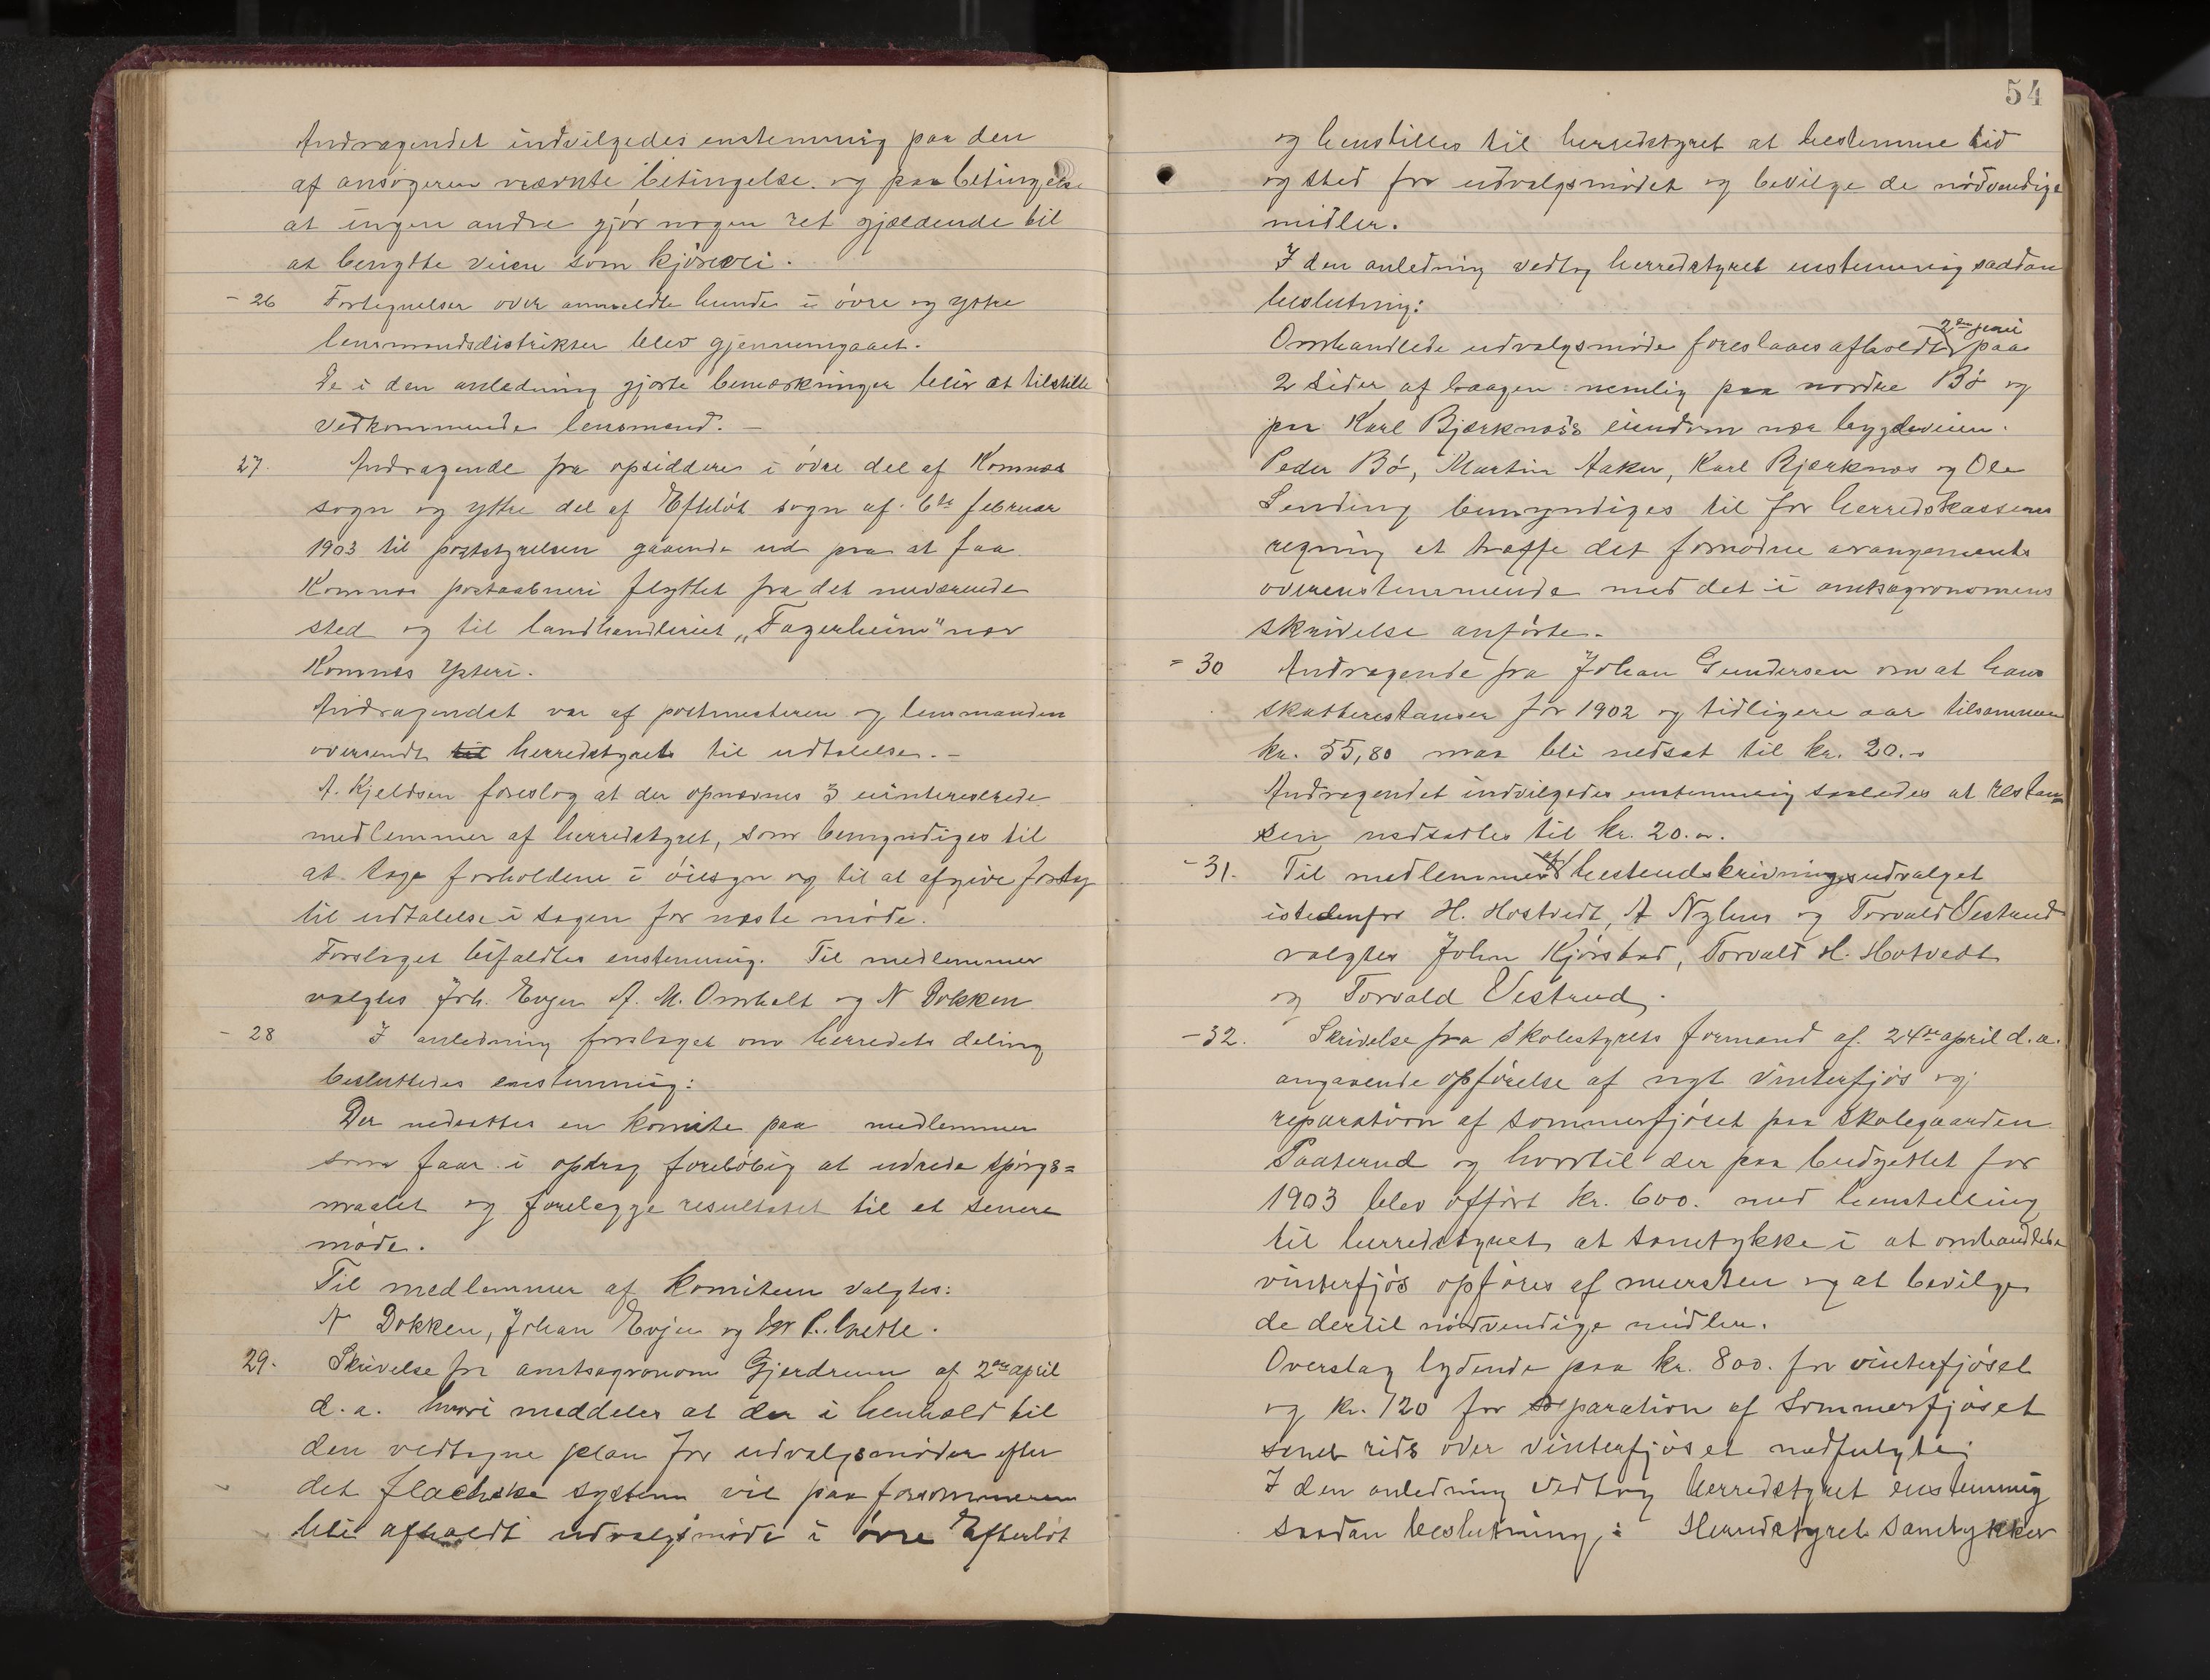 Andragendet indvilgedes enstemmig paa den
af ansøgeren nævnte betingelse og paa betingelse
at ingen andre gjør nogen ret gjældende til
at benytte veien som kjørevei.
- 26 Fortegnelser over anmeldte hunde i øvre og ytre
lensmandsdistrikter blev gjennemgaaet.
De i den anledning gjorte bemerkninger blir at tilstille
vedkommende lensmand. -
27. Andragende fra opsiddere i øvre del af Komnes
sogn og yttre del af Efteløt sogn af 6te februar
1903 til poststyrelsen gaaende ud paa at faa
Komnes postaabneri flyttet fra det nuværende
sted og til landhandleriet „Fagerheim" nær
Komnes Ysteri.
Andragendet var af postmesteren og lensmanden
oversendt til herredstyrets til udtalelse. -
A. Kjeldsen foreslog at der opnævnes 3 uinteresserede
medlemmer af herredstyret, som bemyndiges til
at tage forholdene i øiesyn og til at afgive forslag
til udtalelse i sagen for næste møde.
Forslaget bifaldtes enstemmig. Til medlemmer
valgtes Joh. Evju A. M. Omholt og N Dokken
- 28 I anledning forslaget om herredets deling
besluttedes enstemmig:
Der nedsættes en komite paa medlemmer
som faar i opdrag foreløbig at udrede spørgs=
maalet og forelægge resultatet til et senere
møde.
Til medlemmer af komiteen valgtes:
N Dokken, Johan Evju og
29. Skrivelse fra amtsagronom Gjerdrum af 2den april
d. a. hvori meddeles at der i henhold til
den vedtagne plan for udvalgsmøder efter
det flachske system vil paa forsommeren
bli afholdt udvalgsmøde i øvre Efterløt
54
og henstilles til herredstyret at bestemme tid
og sted for udvalgsmødet og bevilge de nødvendige
midler.
I den anledning vedtog herredstyret enstemmig saadan
beslutning:
2den juni
Omhandlede udvalgsmøde foreslaaes afholdt paa
2 sider af laagen nemlig paa nordre Bø og
paa Karl Bjærknæs's eiendom nær bygdeveien.
Peder Bø, Martin Aaker, Karl Bjærknæs og Ole
Sending bemyndiges til for herredskassens
regning at træffe det fornødne arangements
overenstemmende med det i amtsagronomens
skrivelse anførte.
= 30 Andragende fra Johan Gundersen om at hans
skatterestanser for 1902 og tidligere aar tilsammen
kr. 55,80 maa bli nedsat til kr. 20.-
Andragendet indvilgedes enstemmig saaledes at restan
sen nedsættes til kr. 20.-.
- 31. Til medlemmer af hesteudskrivningsudvalget
istedenfor H. Hostvedt, A Nyhus og Torvald Vestrud
valgtes John Kjørstad, Torvald H. Hotvedt
og Torvald Vestrud.
- 32. Skrivelse fra skolestyrets formand af 24de april d. a.
angaaende opførelse af nyt vinterfjøs og
reparation af sommerfjøset paa skolegaarden
Paaterud og hvortil der paa budgettet for
1903 blev opført kr. 600. med henstilling
til herredstyret at samtykke i at omhandlede
vinterfjøs opføres af mursten og at bevilge
de dertil nødvendige midler.
Overslag lydende paa kr. 800. for vinterfjøset
og kr. 120 for reparation af sommerfjøset
samt rids over vinterfjøset medfulgte.
I den anledning vedtog herredstyret enstemmig
saadan beslutning: Herredstyret samtykker